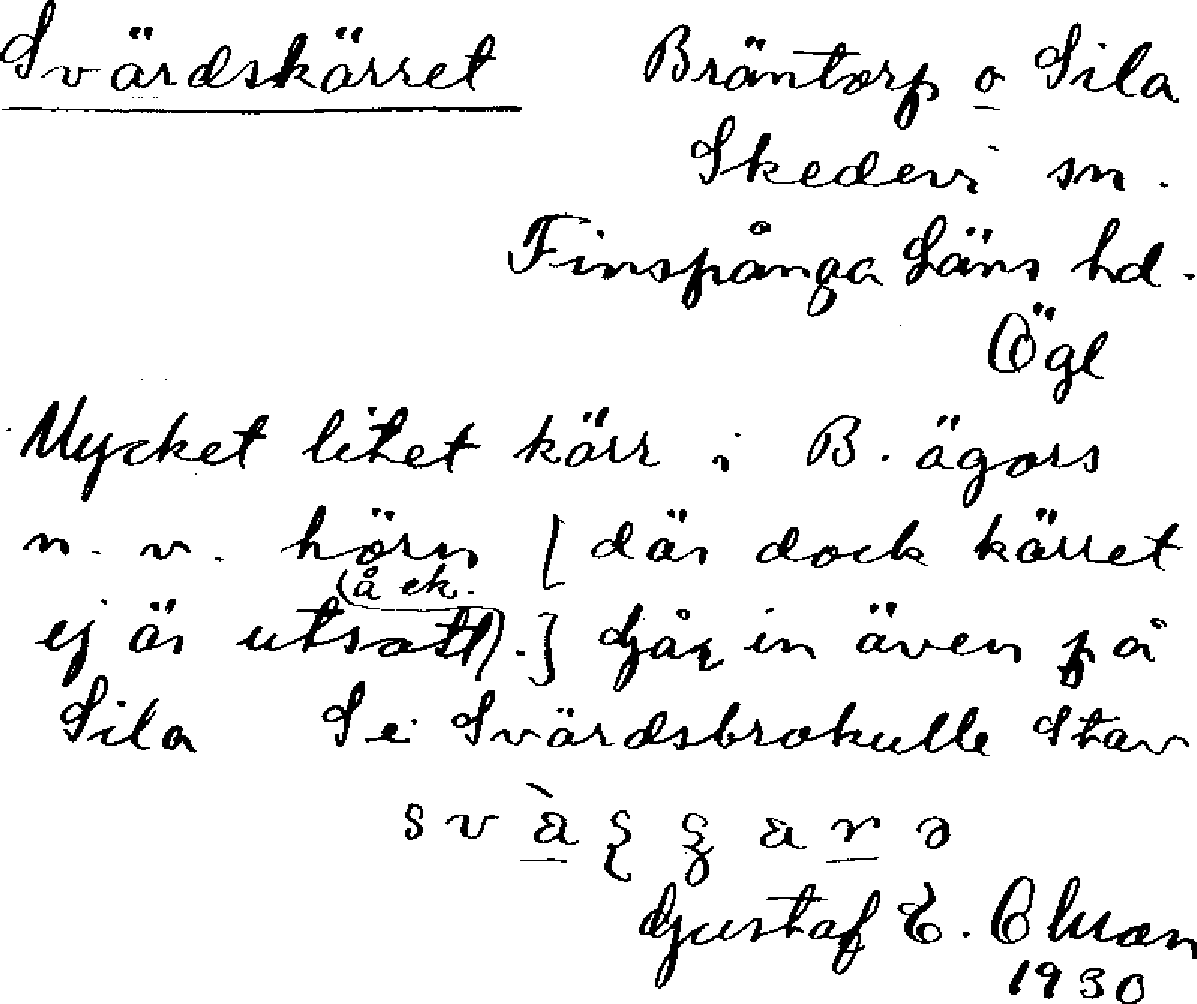 Svärdskärret Bräntorp o Sila
Skedevi sn.
Finspånga Läns hd.
Ögl
Mycket litet kärr i B. ägors
n. v. hörn [där dock kärret
(å ek.
ej är utsatt).] Går in även på
Sila Se Svärdsbrokulle Stav
Gustaf E.
1930